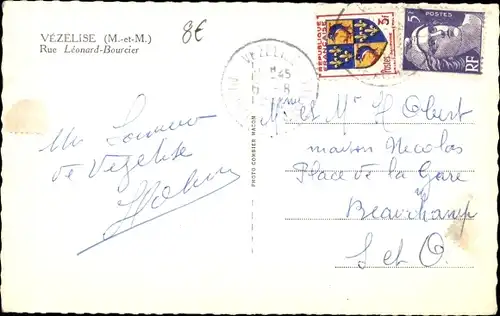 VÉZELISE (M.-et-M.)
Rue Léonard-Bourcier
8€
RÉPUBLIQUE
FRANÇAISE
3F
Postes
5F
POSTES
RF
VEZELISE
45
-8
Un Souvenir
de Vézelise
PHOTO COMBIER MACON
Mme et Mr H Obert
maison Nicolas
Place de la Gare
Beauchamp
S et O.